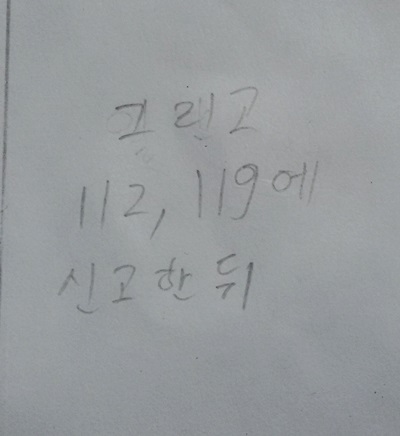 그리고
112, 119에
신고한 뒤